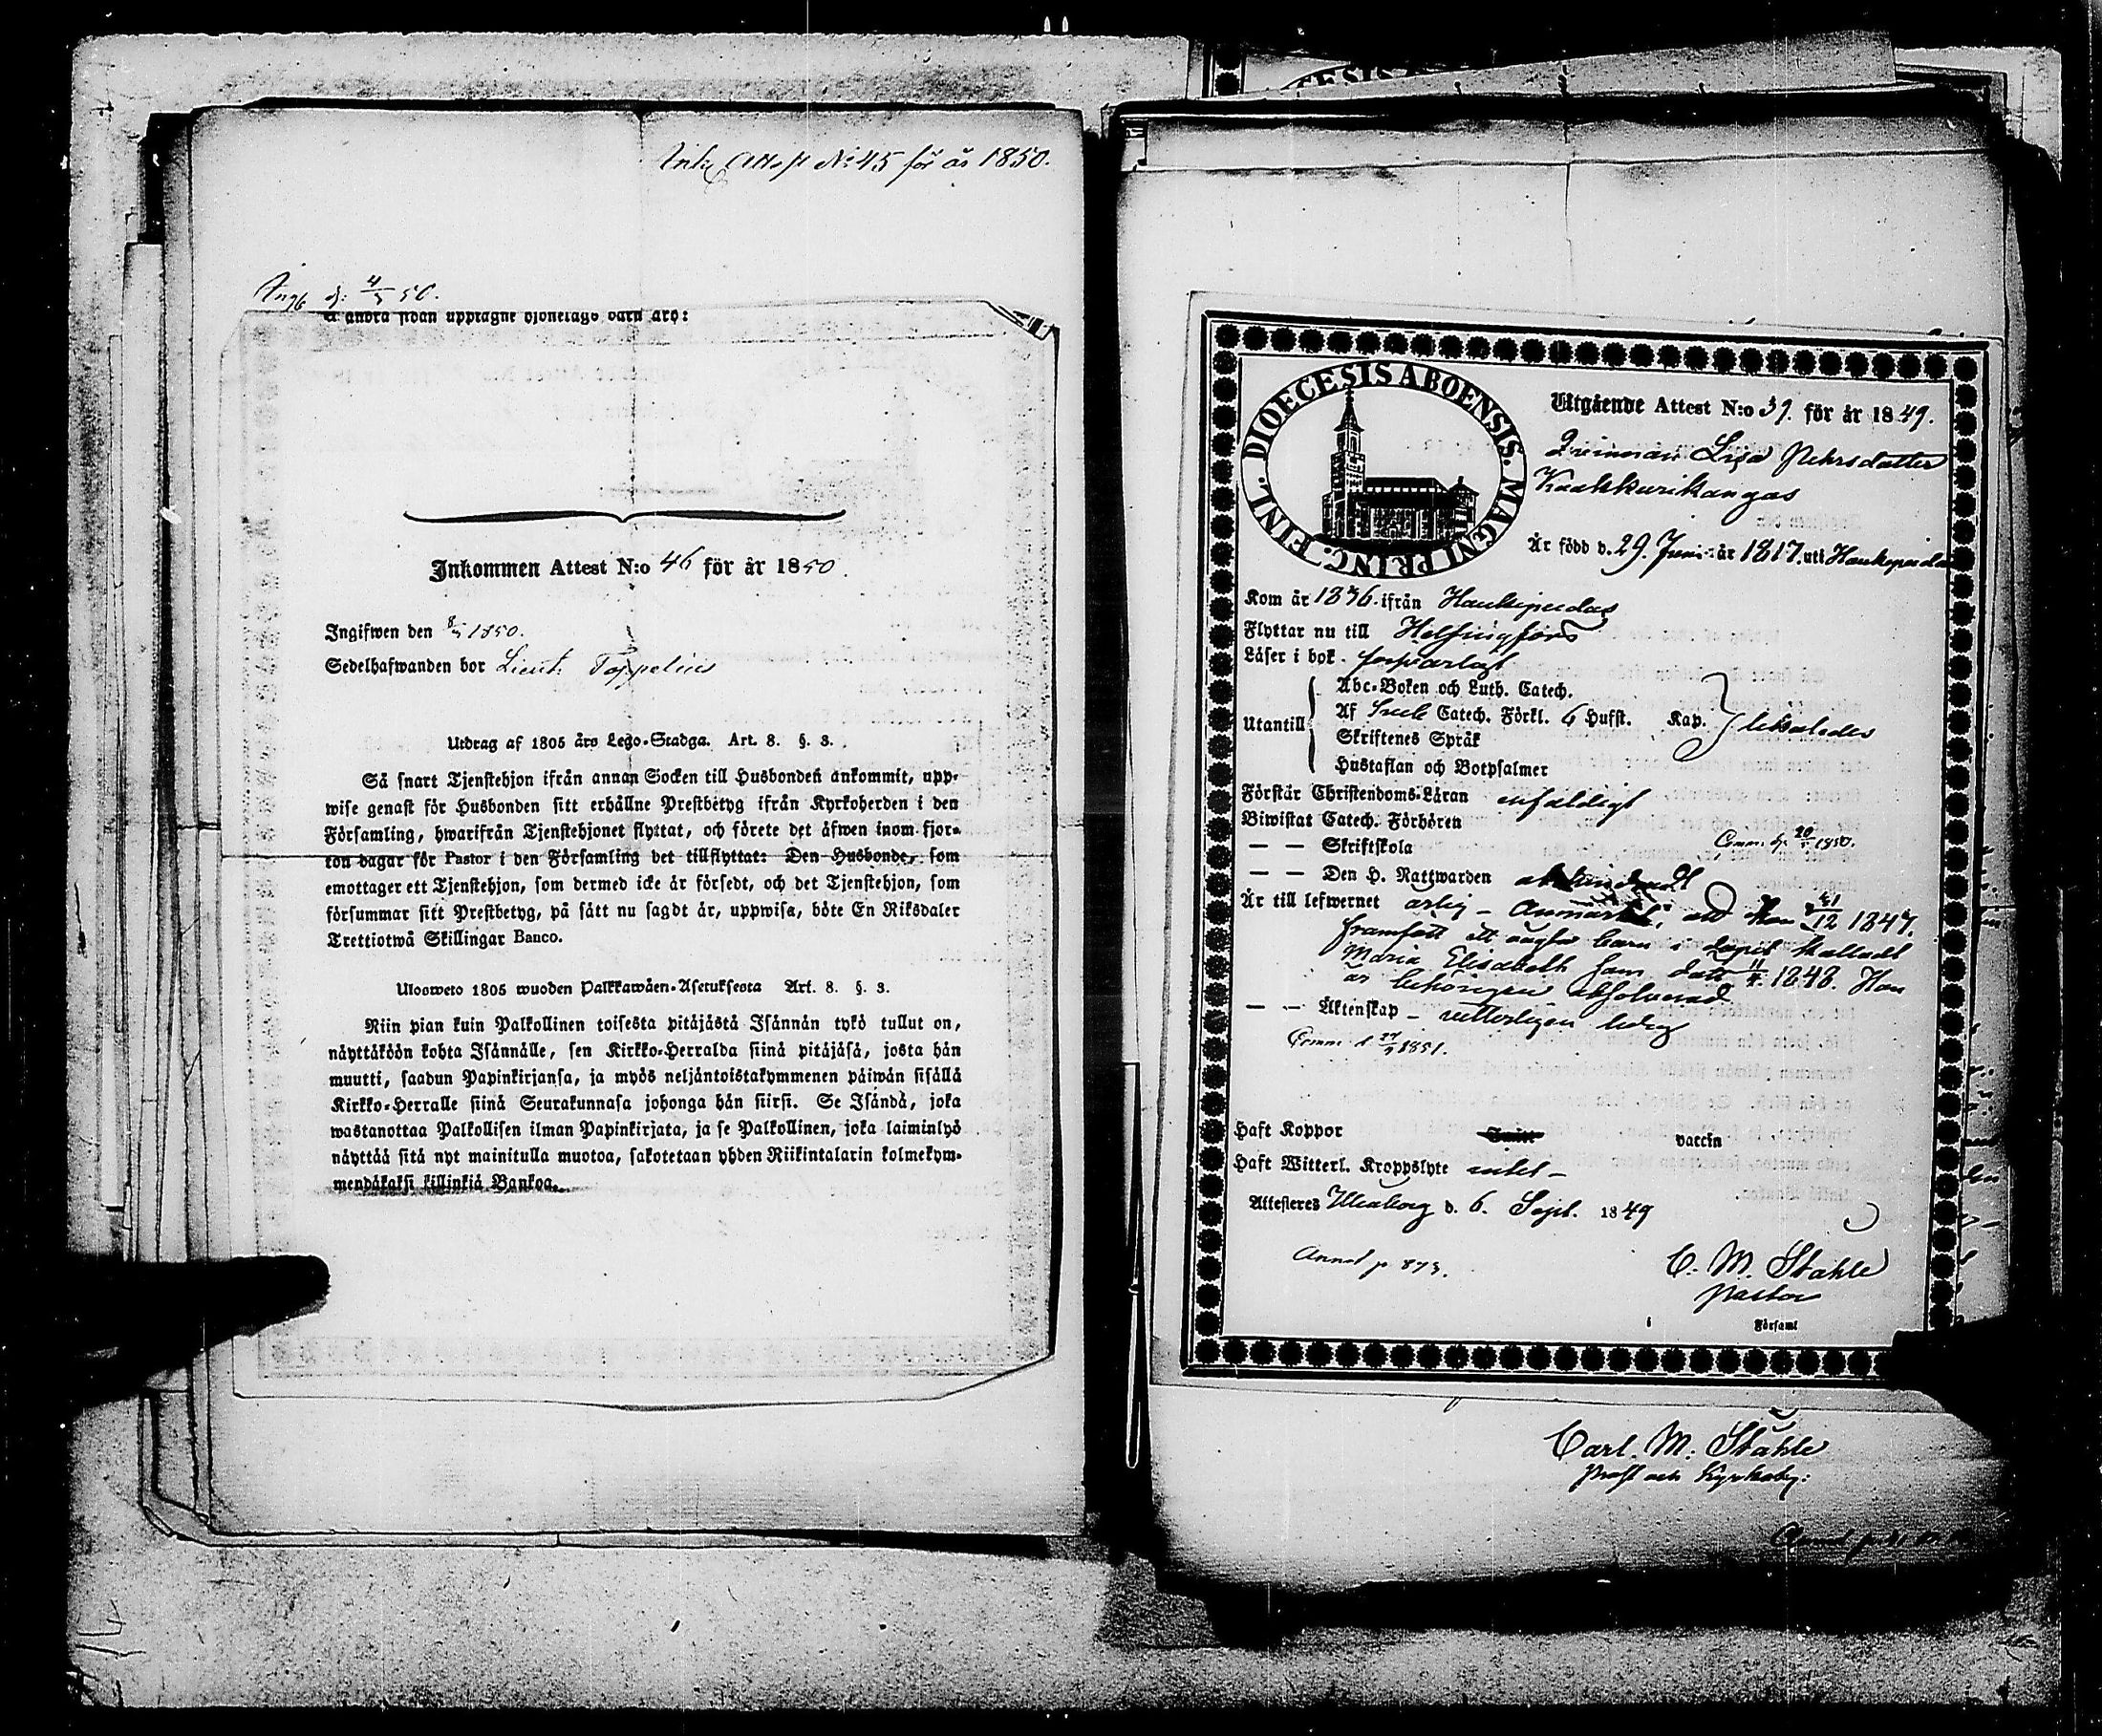 Ink. Attest No 45 för år 1850.
Ingk d: 4/5 50.
å andra sidan upptagne hjonelags barn äro:
Inkommen Attest N:o 46 för år 1850.
Ingifwen den 8/5 1850.
Sedelhafwanden bor Lieut. Toppelius
Utdrag af 1805 års Lego-Stadga. Art. 8. §. 3.
Så snart Tjenstehjon ifrån annan Socken till Husbonden ankommit, upp-
wise genast för Husbonden sitt erhållne Prestbetyg ifrån Kyrkoherden i den
Församling, hwarifrån Tjenstehjonet flyttat, och förete det äfwen inom fjor-
ton dagar för Pastor i den Församling det tillflyttat: Den Husbonde, som
emottager ett Tjenstehjon, som dermed icke är försedt, och det Tjenstehjon, som
försummar sitt Prestbetyg, på sätt nu sagdt är, uppwisa, böte En Riksdaler
Trettiotwå Skillingar Banco.
Ulosweto 1805 wuoden Palkkawäen-Asetuksesta Art. 8. §. 3.
Niin pian kuin Palkollinen toisesta pitäjästä Isännän tykö tullut on,
näyttäköön kohta Isännälle, sen Kirkko-Herralda siinä pitäjäsä, josta hän
muutti, saadun Papinkirjansa, ja myös neljäntoistakymmenen päiwän sisällä
Kirkko-Herralle siinä Seurakunnasa johonga hän siirsi. Se Isändä, joka
wastanottaa Palkollisen ilman Papinkirjata, ja se Palkollinen, joka laiminlyö
näyttää sitä nyt mainitulla muotoa, sakotetaan yhden Riikintalarin kolmekym-
mendäkaksi killinkiä Bankoa.
DIOECESIS ABOENSIS. MAGNI PRINC. FINL.
Utgående Attest N:o 39. för år 1849.
Qvinnan Lisa Pehrsdotter
Kaakkurikangas
Är född d. 29. Juni år 1817. uti Haukipudas
Kom år 1836. ifrån Haukipudas
Flyttar nu till Helsingfors
Läser i bok. försvarligt
Abc-Boken och Luth. Catech.
Utantill Af Sveb Catech. Förkl. 6 Hufst. Kap.
Skriftenes Språk
Hustaflan och Botpsalmer
Förstår Christendoms-Läran enfaldigt
Biwistat Catech. Förhören
— — Skriftskola Comm. d. 20/5 1850.
— — Den H. Nattwarden
Är till lefwernet ärlig — Anmärkt, att hon 31/12 1847.
framfödt ett oägta barn i dopet kalladt
Maria Elisabeth som dött 11/4 1848. Hon
är behörigen absolverad.
— — Äktenskap — vitterligen ledig
Comm. d. 27/7 1851.
Haft Koppor vaccin
Haft Witterl. Kroppslyte intet —
Attesteres Uleåborg d. 6. Sept. 1849
Annot p 873.
C. M. Ståhle
Pastor
i Församl
Carl. M: Ståhle
Prost och Kyrkoby: